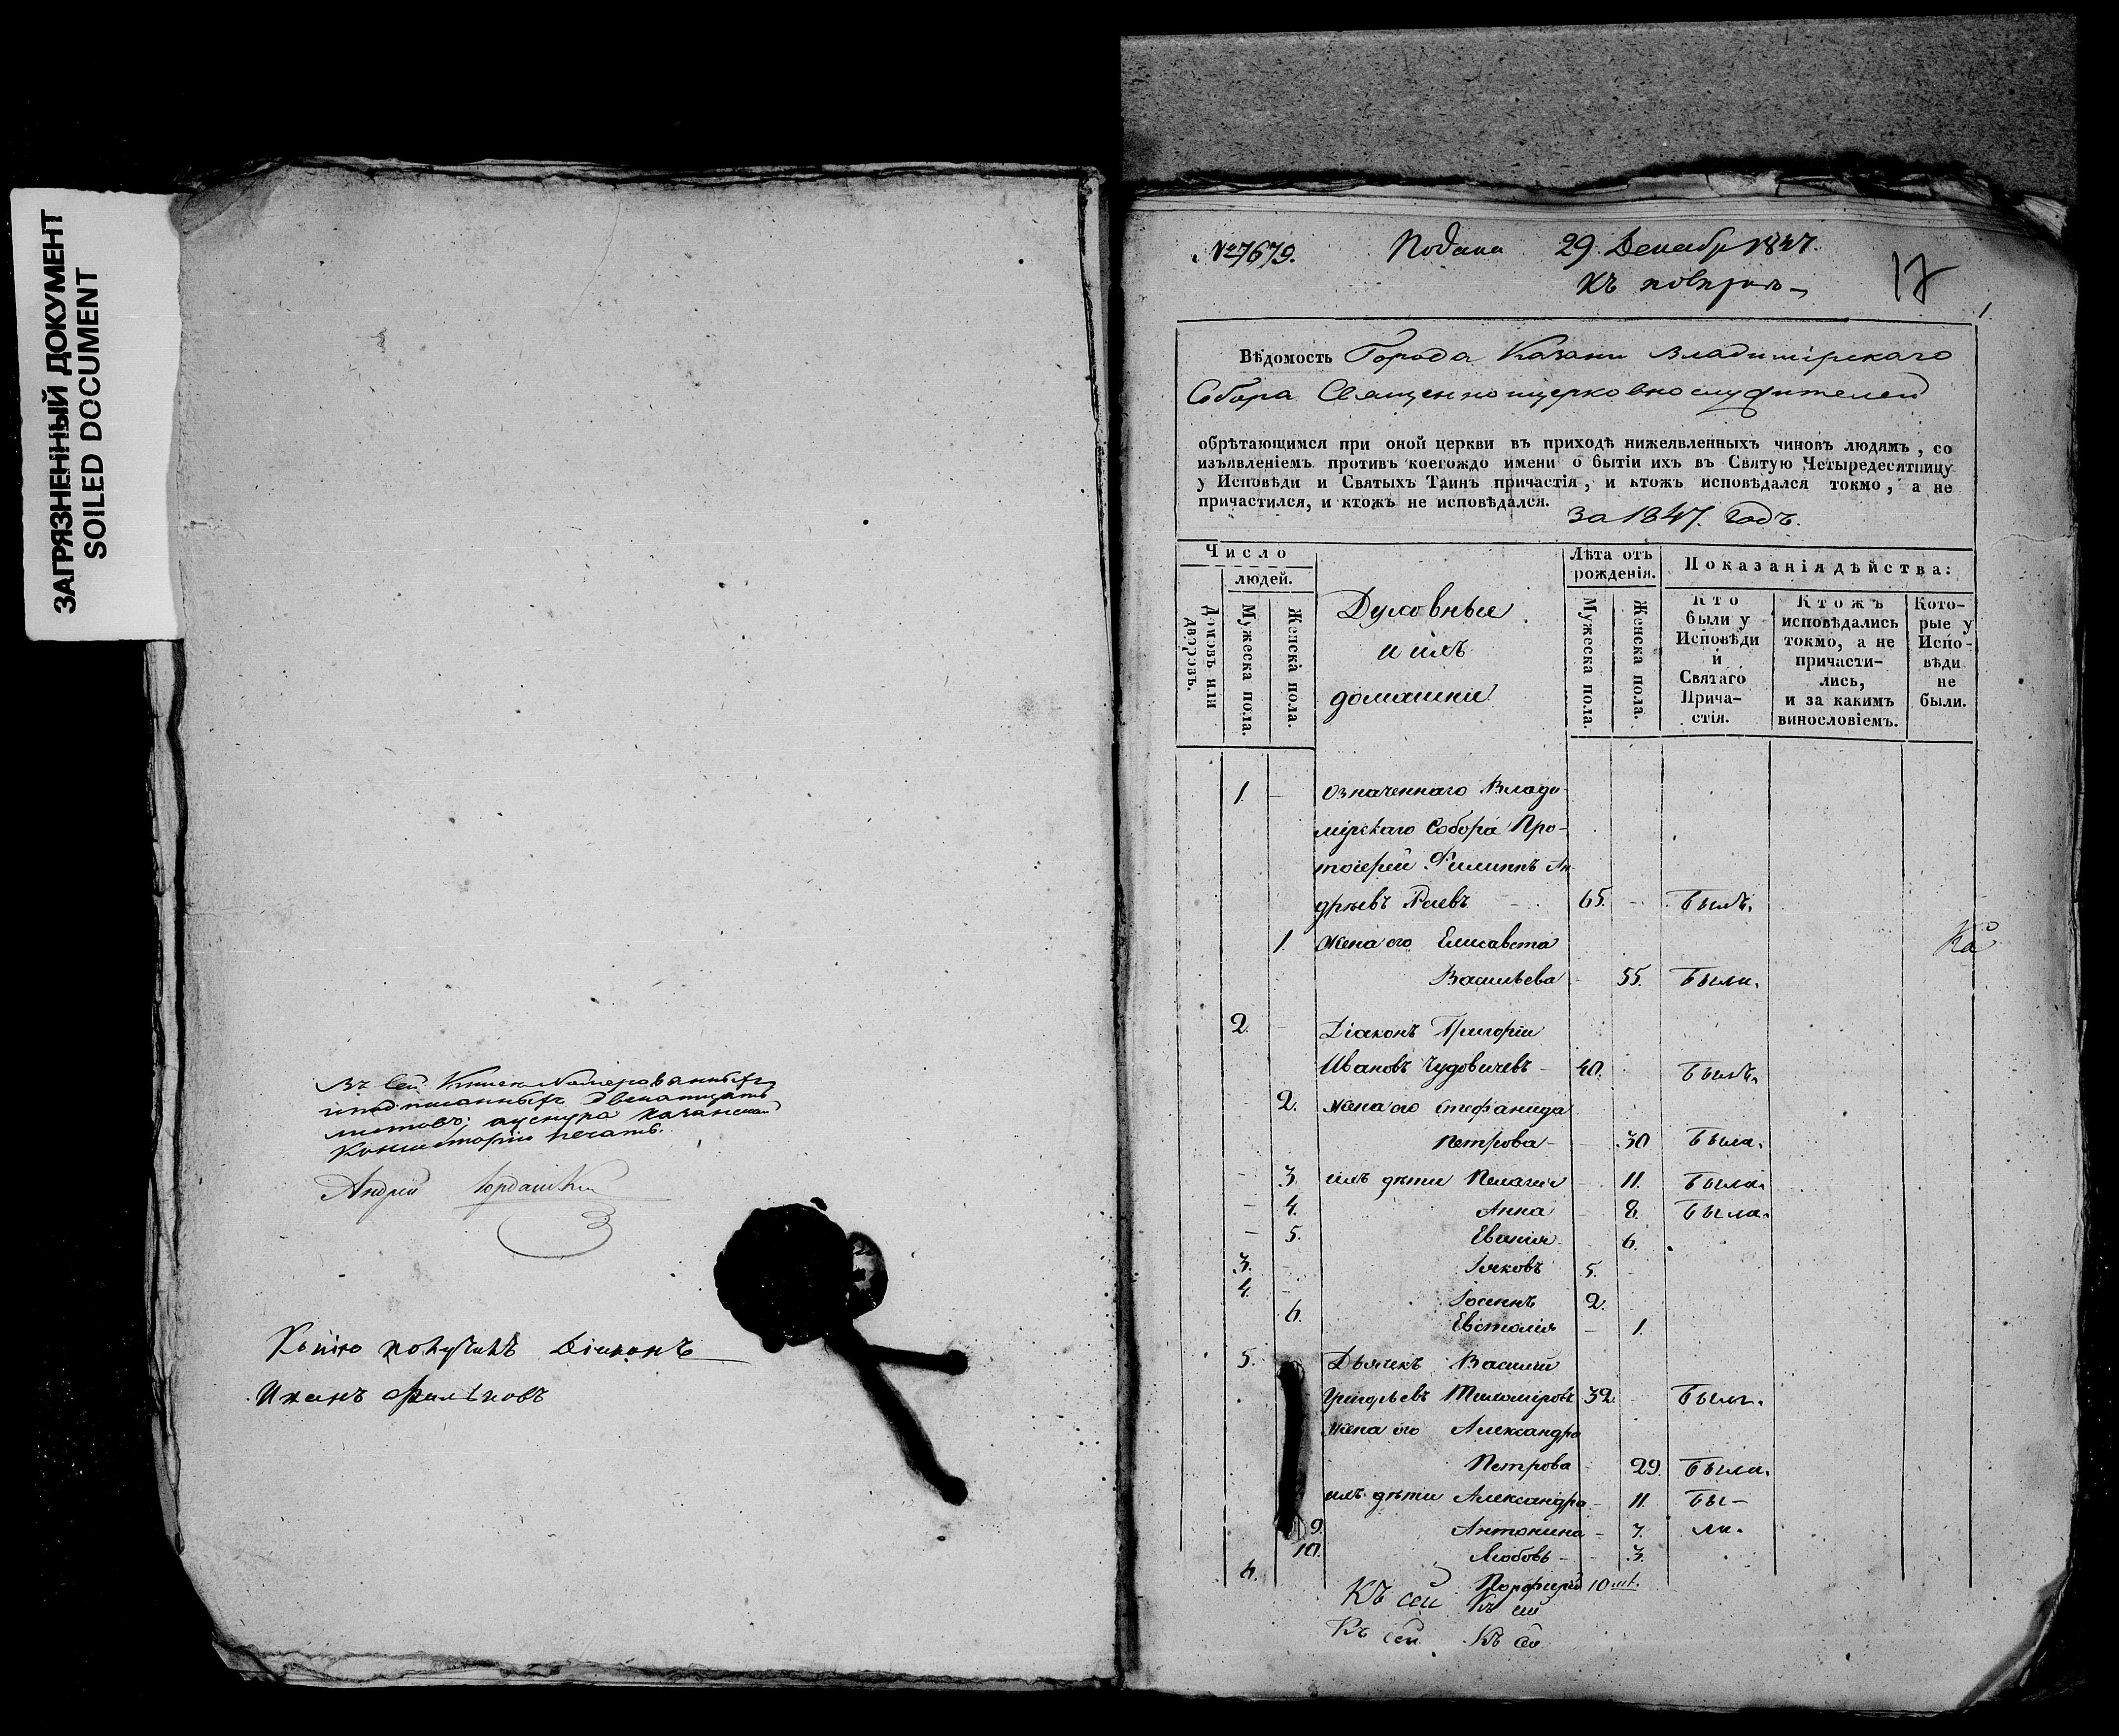 ЗАГРЯЗНЕННЫЙ ДОКУМЕНТ
SOILED DOCUMENT
Въ сей Книге Номерованныхъ
и подписанныхъ двенатцать
листовъ, Казанской
Консисторіи печать.
Андрей
Книгу получилъ Діаконъ
№ 7679. Подана 29 Декабр 1847.
къ
17
Вѣдомость Города Казани Владимірскаго
Собора Священноцерковнослужителей
обрѣтающимся при оной церкви въ приходѣ нижеявленныхъ чиновъ людямъ, со
изъявленіемъ противъ коегождо имени о бытіи ихъ въ Святую Четыредесятницу
у Исповѣди и Святыхъ Таинъ причастія, и ктожъ исповѣдался токмо, а не
причастился, и ктожъ не исповѣдался.
За 1847. Годъ.
Число
людей.
Домовъ или дворовъ.
Мужеска пола.
Женска пола.
Духовные
и ихъ
домашніи
Лѣта отъ рожденія.
Мужеска пола.
Женска пола.
Показанія дѣйства:
Кто были у Исповѣди и Святаго Прича- стія.
Ктожъ исповѣдались токмо, а не причасти- лись, и за какимъ винословіемъ.
Кото- рые у Испо- вѣди не были.
1. Означеннаго Влади-
мірскаго Собора Про-
тоіерей Филиппъ Ан-
дреевъ Раевъ 65. Былъ.
1. Жена его Елисавета
Васильева 55. Были.
2. Діаконъ Григорій
Ивановъ Чудовичевъ 40. Былъ.
2. Жена его Стефанида
Петрова 30 Была.
3. ихъ дѣти Пелагія 11. Была.
4. Анна 8. Была.
5. 6.
3. Іяковъ 5.
4. Іосипъ 2.
6. Евстолія 1.
5. Дьячекъ Василій
Григорьевъ Тихоміровъ 32. Былъ.
Жена его Александра
Петрова 29. Была.
ихъ дѣти Александра 11. Бы-
9. Антонина 7. ли.
10. Любовь 3.
6. Порфирій 10 мѣ.
Къ сей Къ сей
Къ сей Къ сей